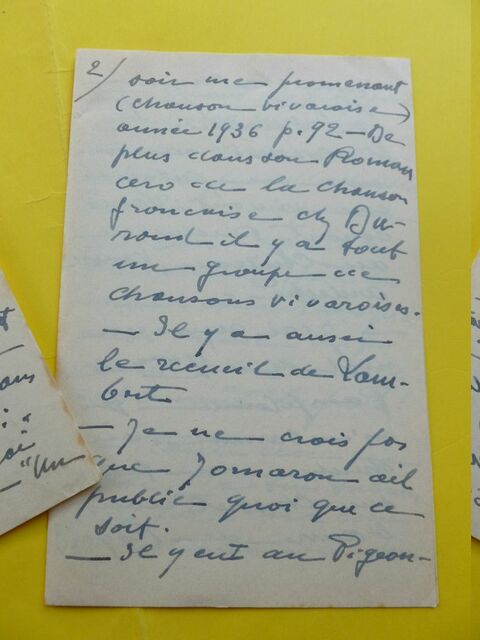 2/ soir me promenant
(chanson vivaroise)
année 1936 p. 92 – De
plus dans son Roman
cero de la chanson
française chez Du-
rand il y a tout
un groupe de
chansons vivaroises.
– Il y a aussi
le recueil de Lam-
bert.
– Je ne crois pas
que Jomaron ait
publié quoi que ce
soit.
– Il y eut au Pigeon-
ans
"un